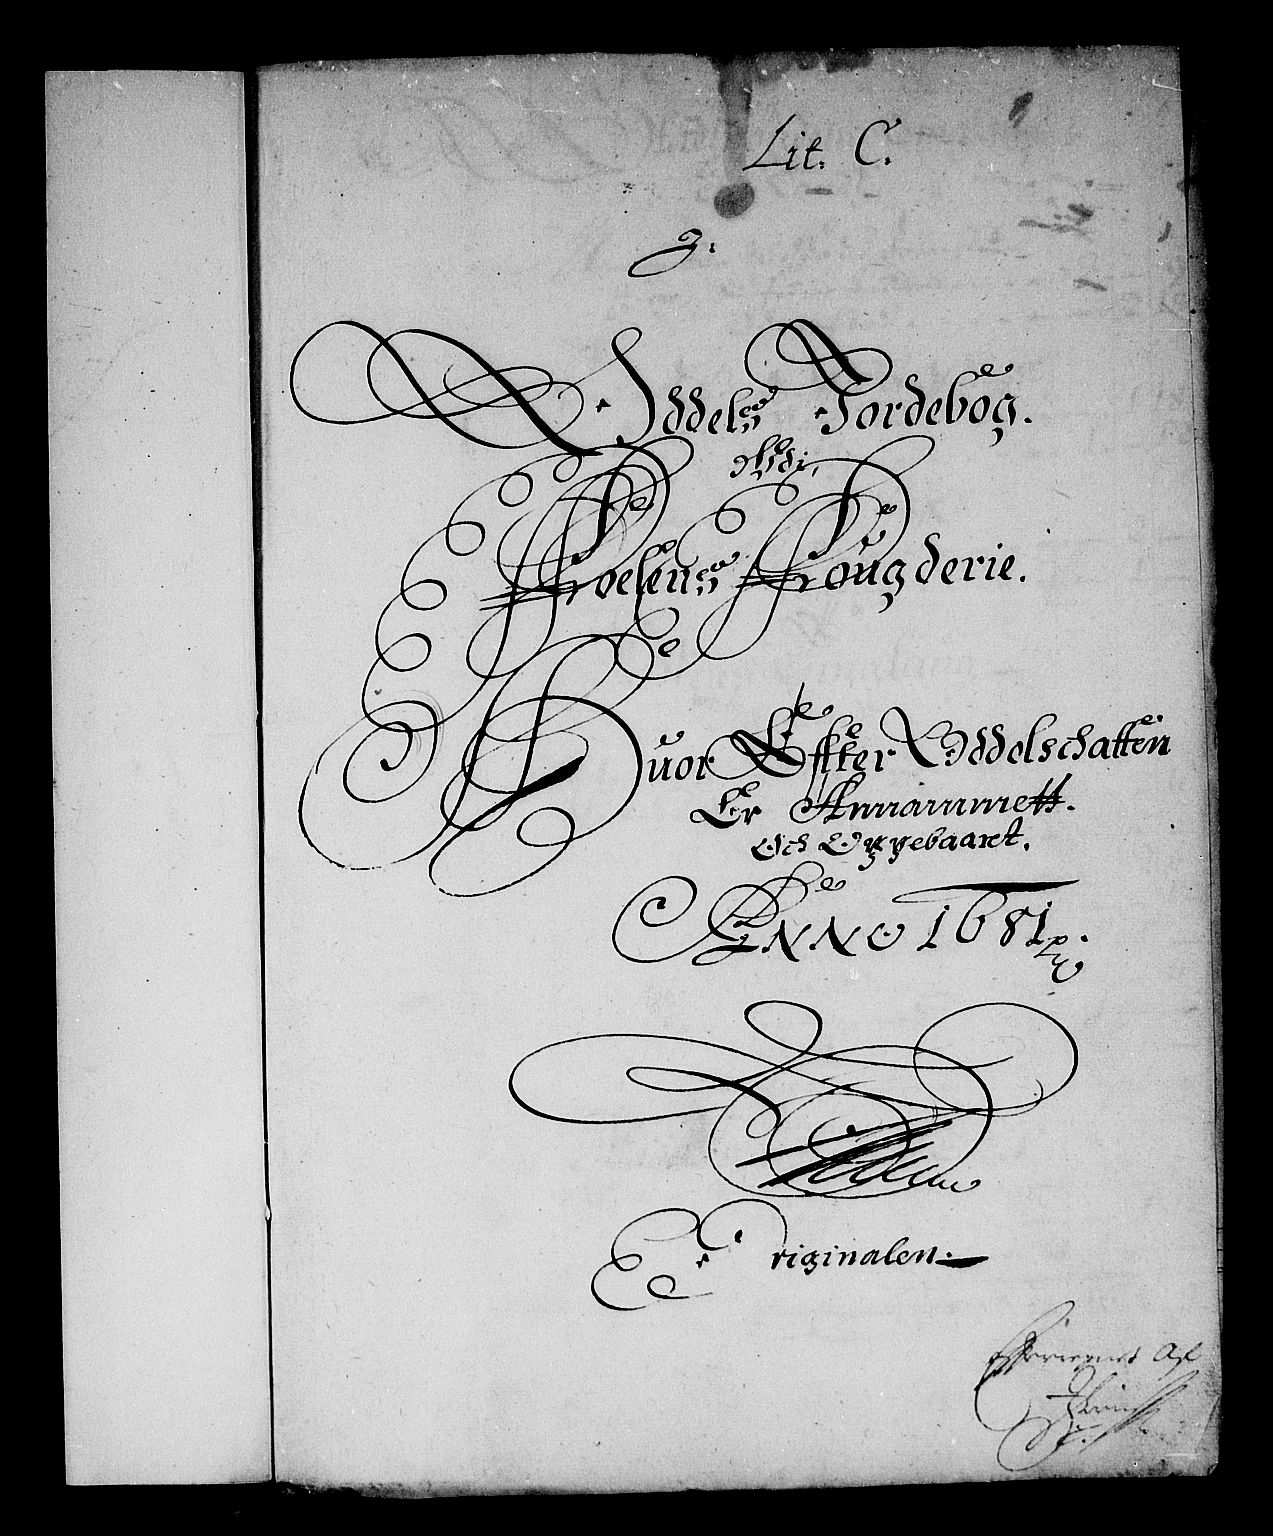 Lit. C.
3.
Oddels Jordebog.
Udi,
Fosens Fougderie.
Huor Efter Oddelschatten
Er Annammett.
Och Oppebaaret.
ANNO 1681
Originalen.